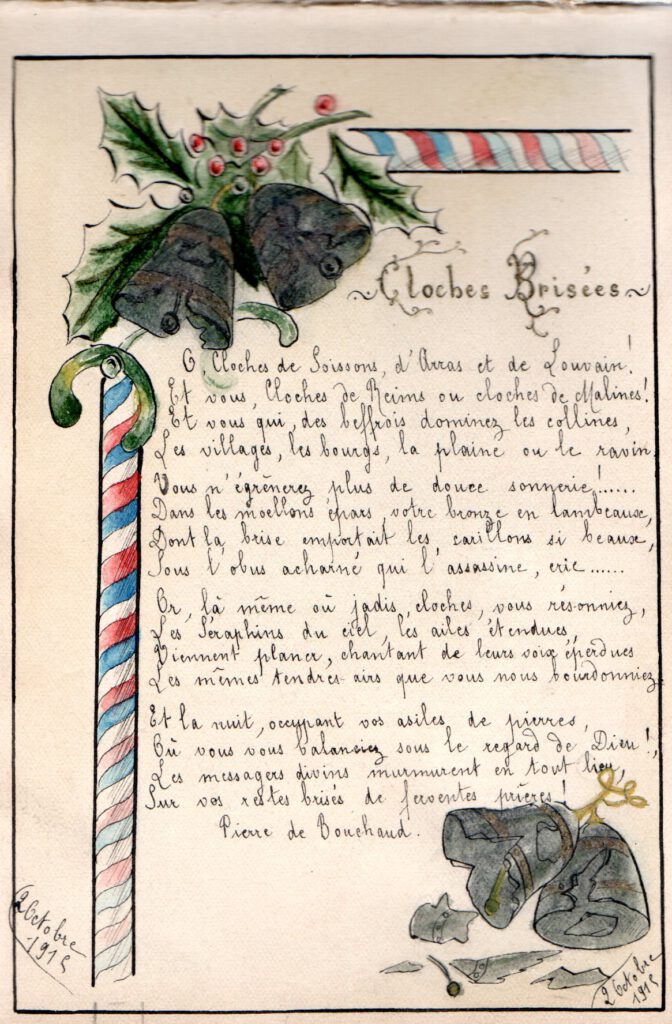 Cloches Brisées
O, Cloches de Soissons, d'Arras et de Louvain!
Et vous, Cloches de Reims ou cloches de Malines!
Et vous qui, des beffrois dominez les collines,
Les villages, les bourgs, la plaine ou le ravin
Vous n'égrènerez plus de douce sonnerie!......
Dans les moellons épars, votre bronze en lambeaux,
Dont la brise emportait les carillons si beaux,
Sous l'obus acharné qui l'assassine, crie......
Or, là même où jadis, cloches, vous résonniez,
Les Séraphins du ciel, les ailes étendues,
Viennent planer, chantant de leurs voix éperdues
Les mêmes tendres airs que vous nous bourdonniez
Et la nuit, occupant vos asiles de pierres,
Où vous vous balanciez sous le regard de Dieu!,
Les messagers divins murmurent en tout lieu,
Sur vos restes brisés de ferventes prières!
Pierre de Bouchaud.
2 Octobre
1915
2 Octobre
1915